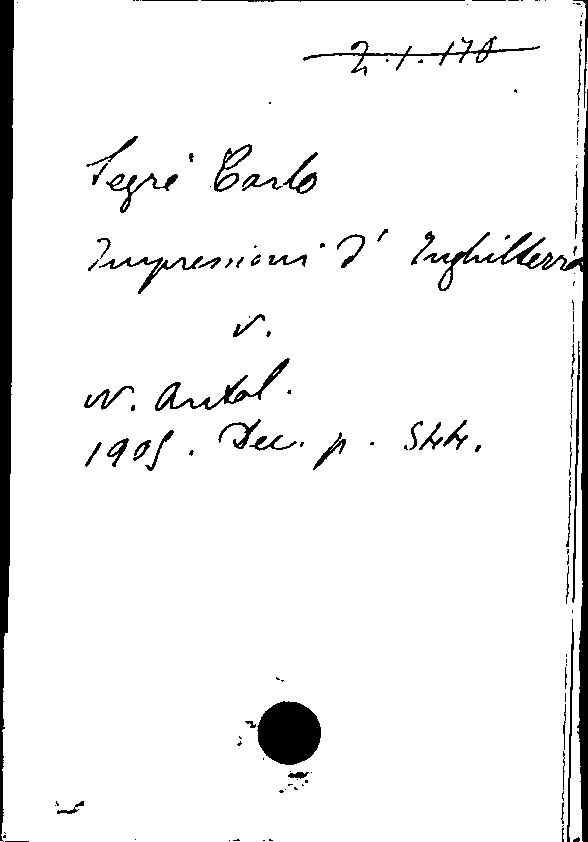 2.1.170
Segrè Carlo
Impressioni d' Inghilterra
v.
N. Antol.
1905. Dec. p. 544.